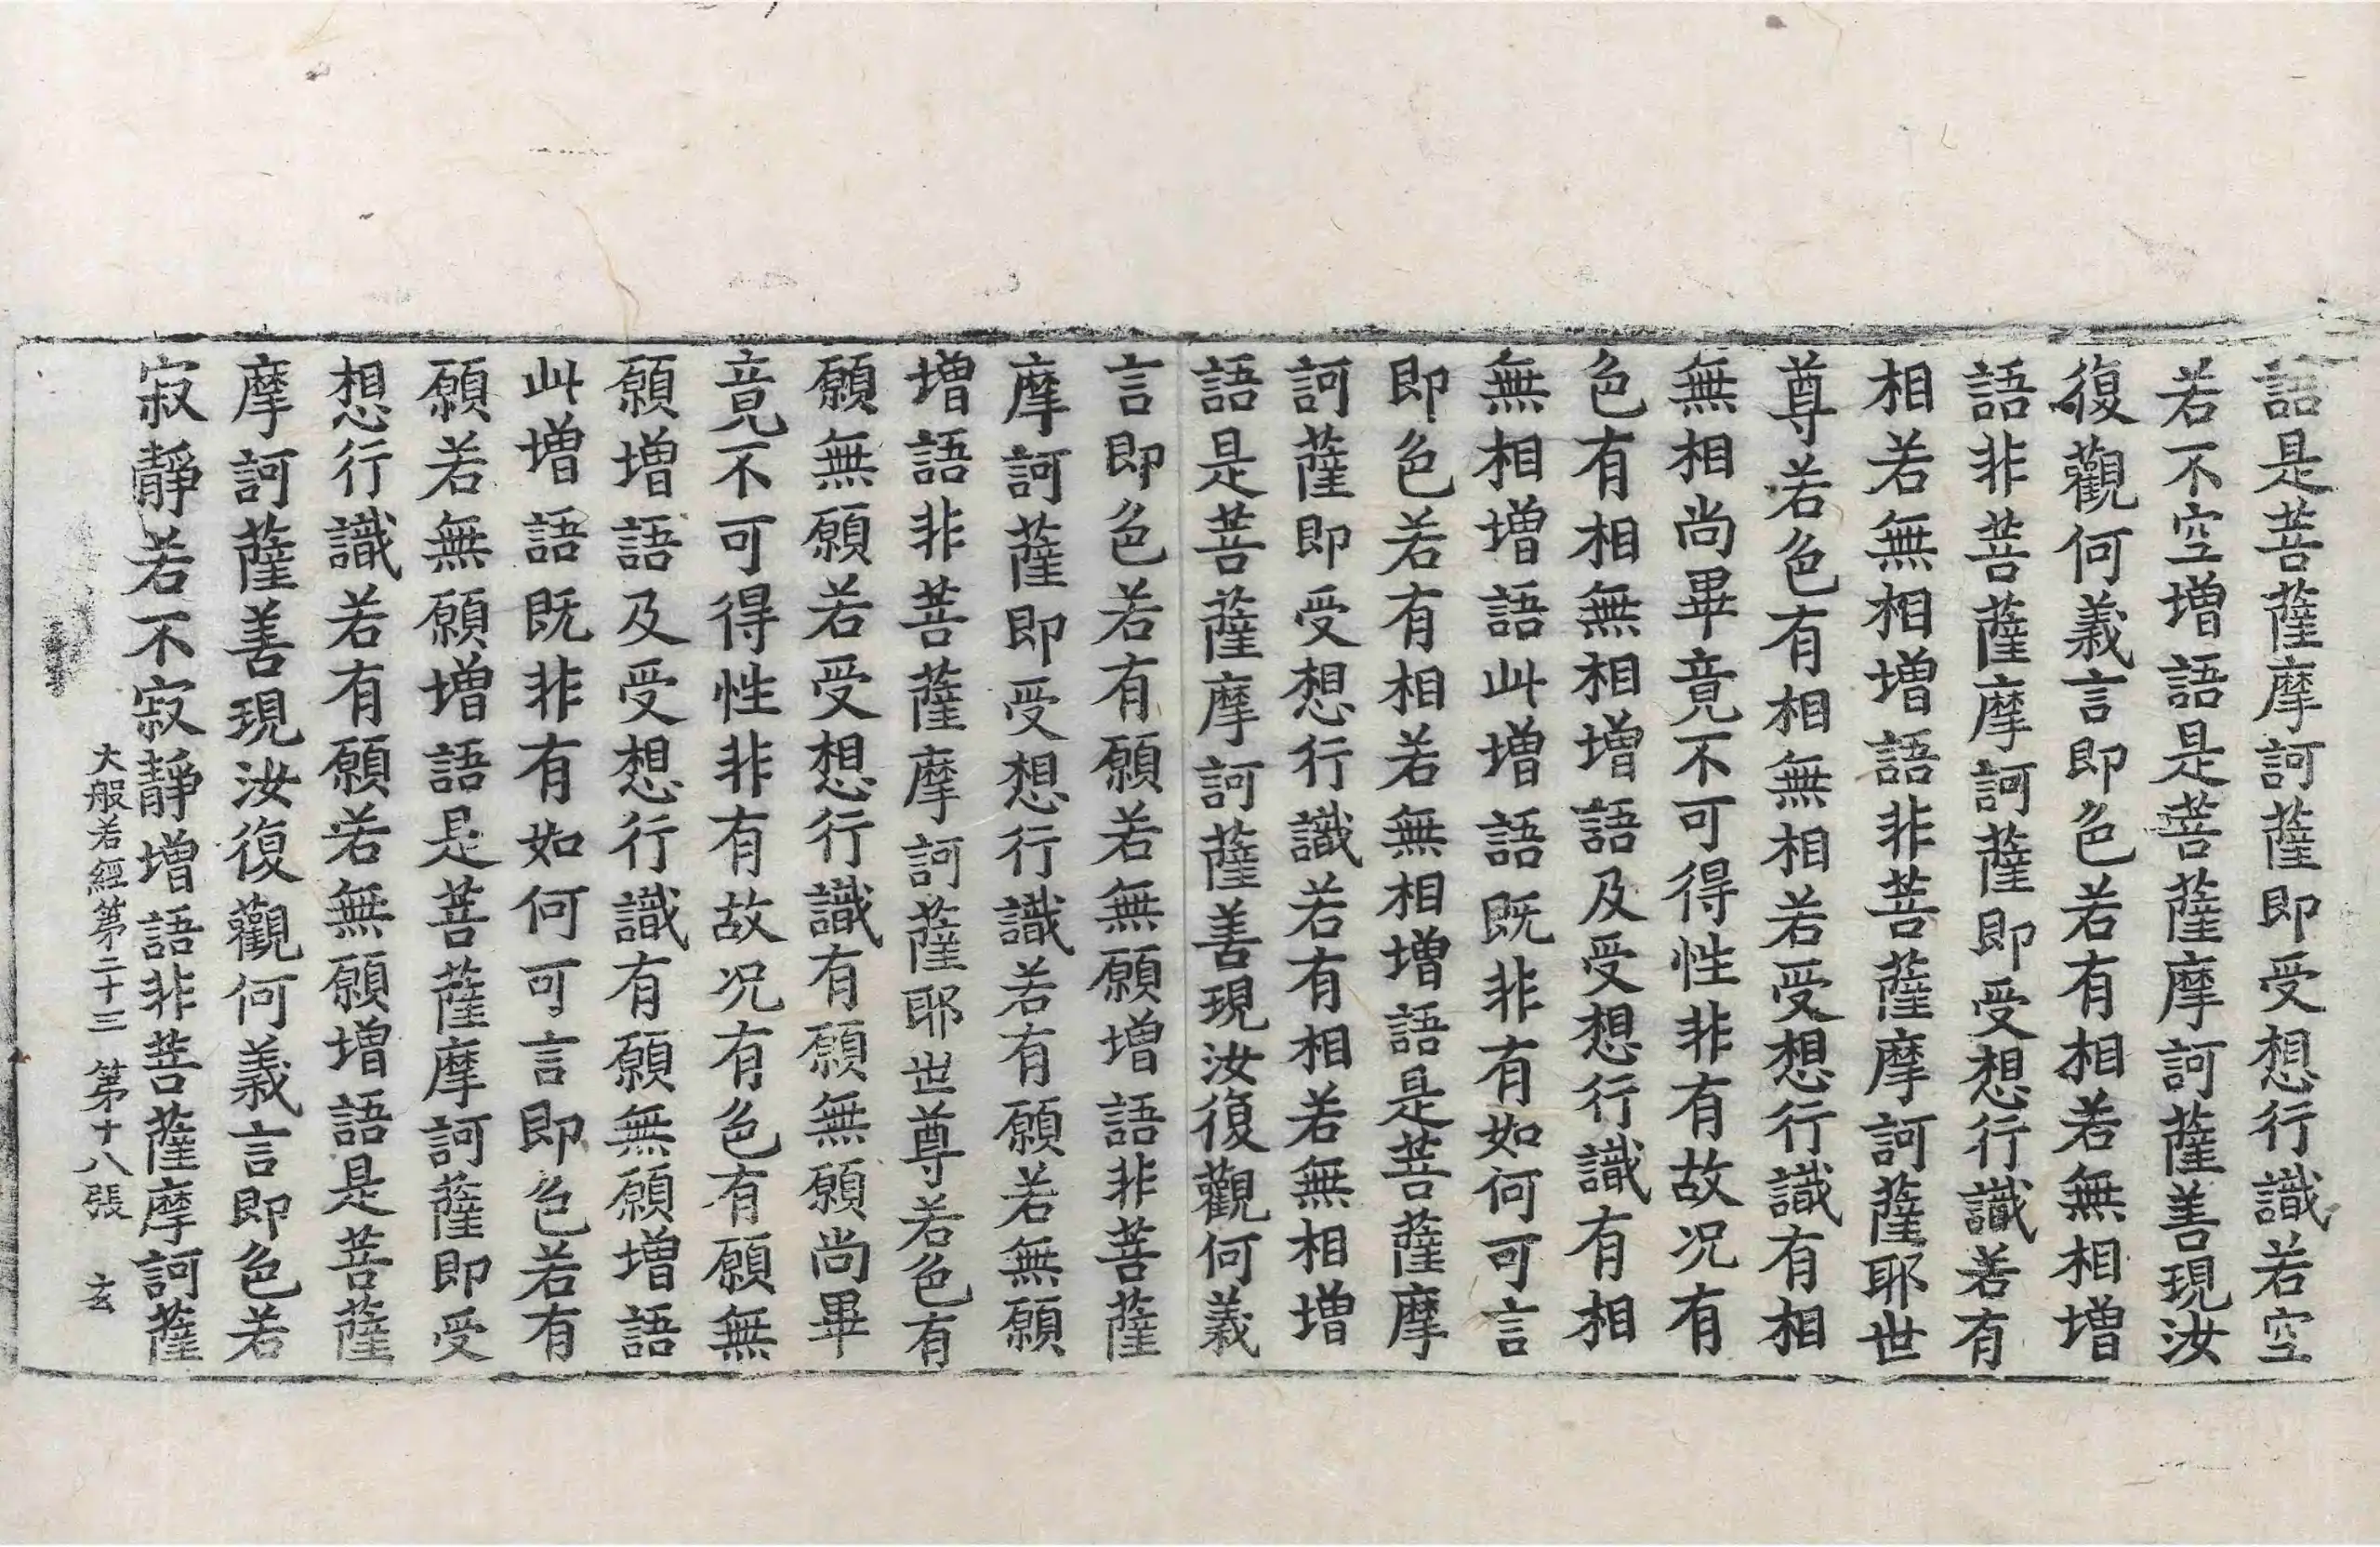 語是菩薩摩訶薩即受想行識若空
若不空增語是菩薩摩訶薩善現汝
復觀何義言即色若有相若無相增
語非菩薩摩訶薩即受想行識若有
相若無相增語非菩薩摩訶薩耶世
尊若色有相無相若受想行識有相
無相尚畢竟不可得性非有故况有
色有相無相增語及受想行識有相
無相增語此增語既非有如何可言
即色若有相若無相增語是菩薩摩
訶薩即受想行識若有相若無相增
語是菩薩摩訶薩善現汝復觀何義
言即色若有願若無願增語非菩薩
摩訶薩即受想行識若有願若無願
增語非菩薩摩訶薩耶世尊若色有
願無願若受想行識有願無願尚畢
竟不可得性非有故况有色有願無
願增語及受想行識有願無願增語
此增語既非有如何可言即色若有
願若無願增語是菩薩摩訶薩即受
想行識若有願若無願增語是菩薩
摩訶薩善現汝復觀何義言即色若
寂靜若不寂靜增語非菩薩摩訶薩
大般若經第二十三 第十八張 玄